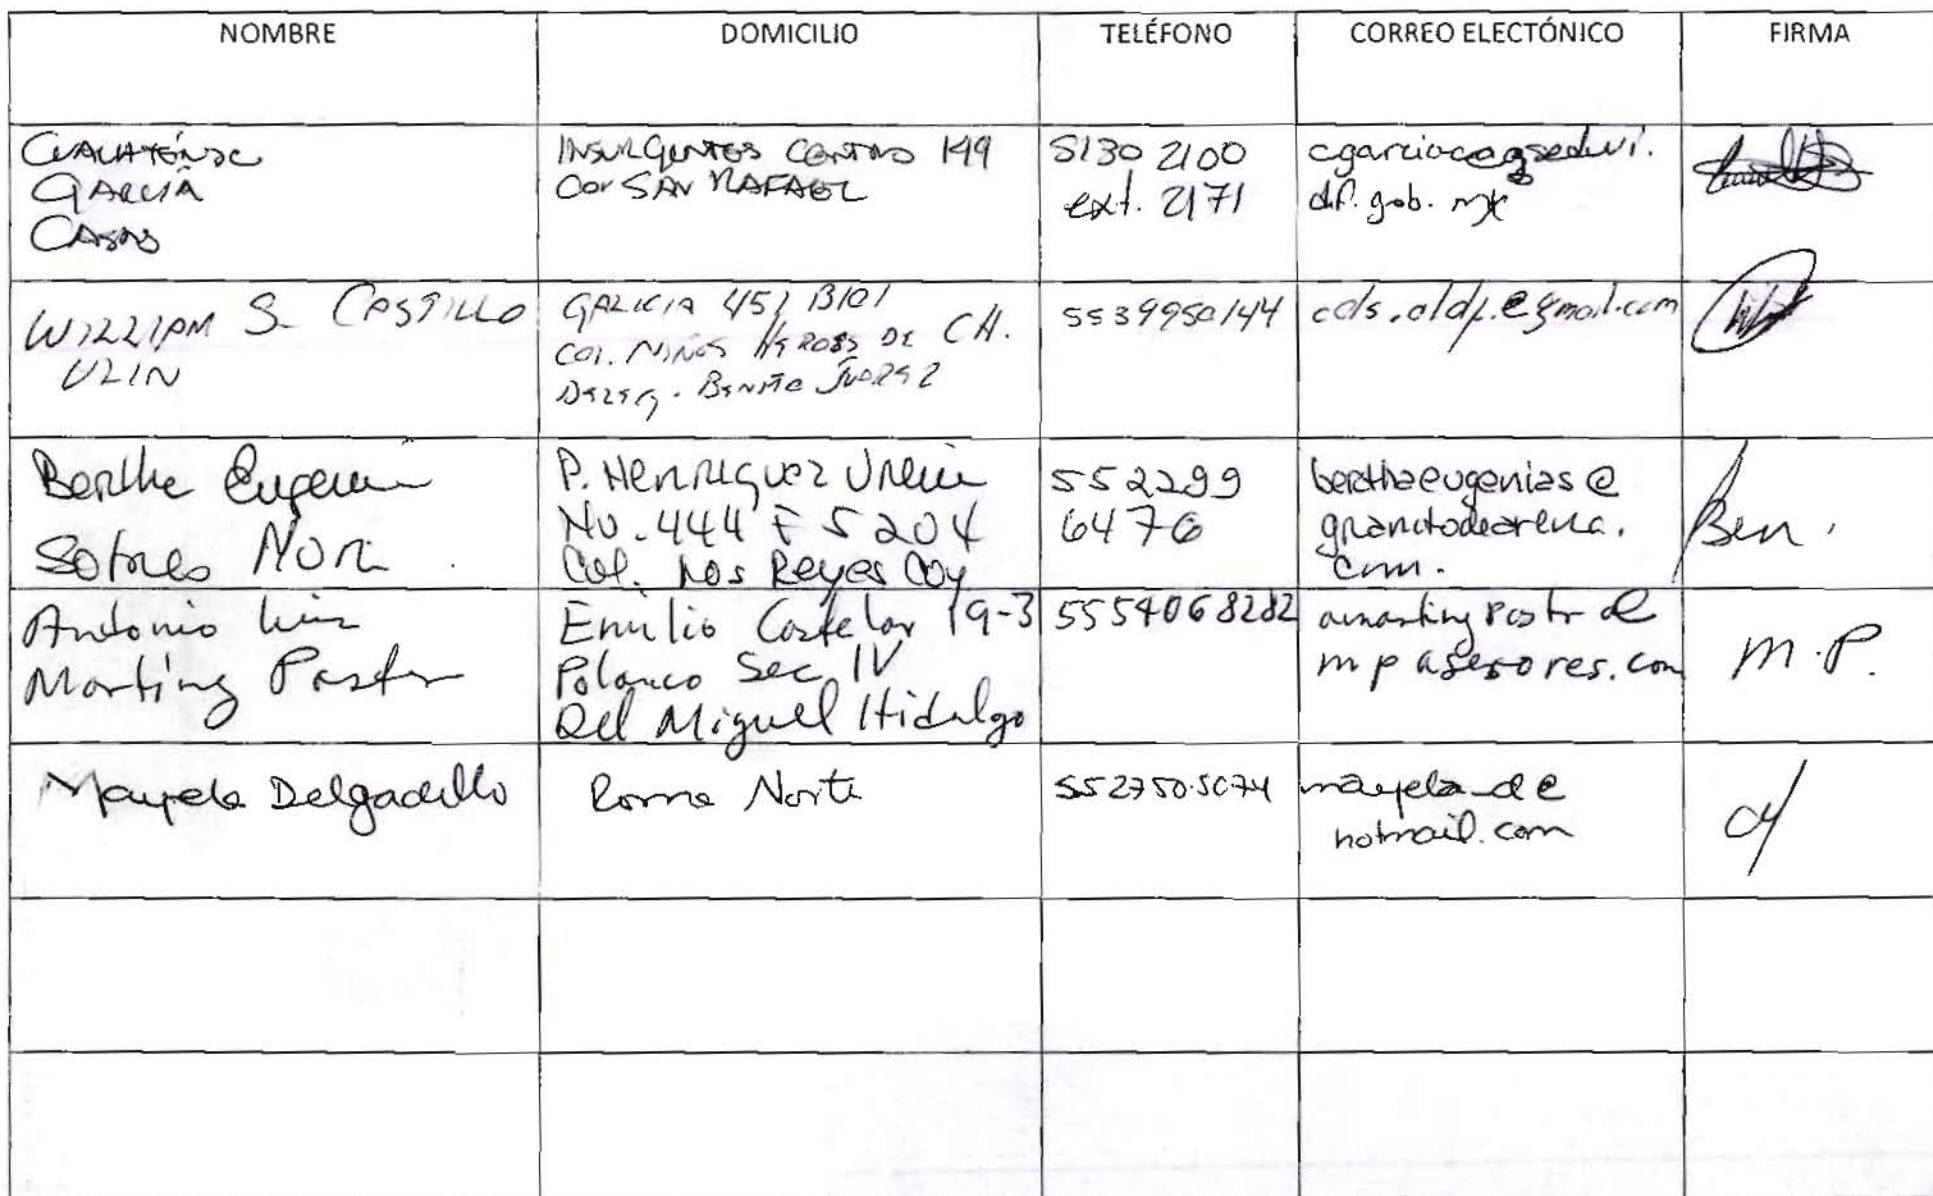 NOMBRE DOMICILIO TELÉFONO CORREO ELECTÓNICO FIRMA
CUAUHTÉMOC
GARCÍA
CASAS
INSURGENTES CENTRO 149
COL SAN RAFAEL
5130 2100
ext. 2171
cgarciac@seduvi.
df.gob.mx
WILLIAM S. CASTILLO
ULIN
GALICIA 45, B101
COL. NIÑOS HEROES DE CH.
DELEG. BENITO JUAREZ
5539950144
cds.aldf.@gmail.com
Bertha Eugenia
Sotres Mora
P. Henriquez Ureña
No. 444 F 5 204
Col. Los Reyes Coy
552299
6476
berthaeugenias@
granitodearena.
com.
Ben.
Antonio Luis
Martinz Pastor
Emilio Castelar 19-3
Polanco Sec IV
Del Miguel Hidalgo
5554068282
amartinzpastor@
mpasesores.com
M.P.
Mayela Delgadillo
Roma Norte
5527505074
mayela_d@
hotmail.com